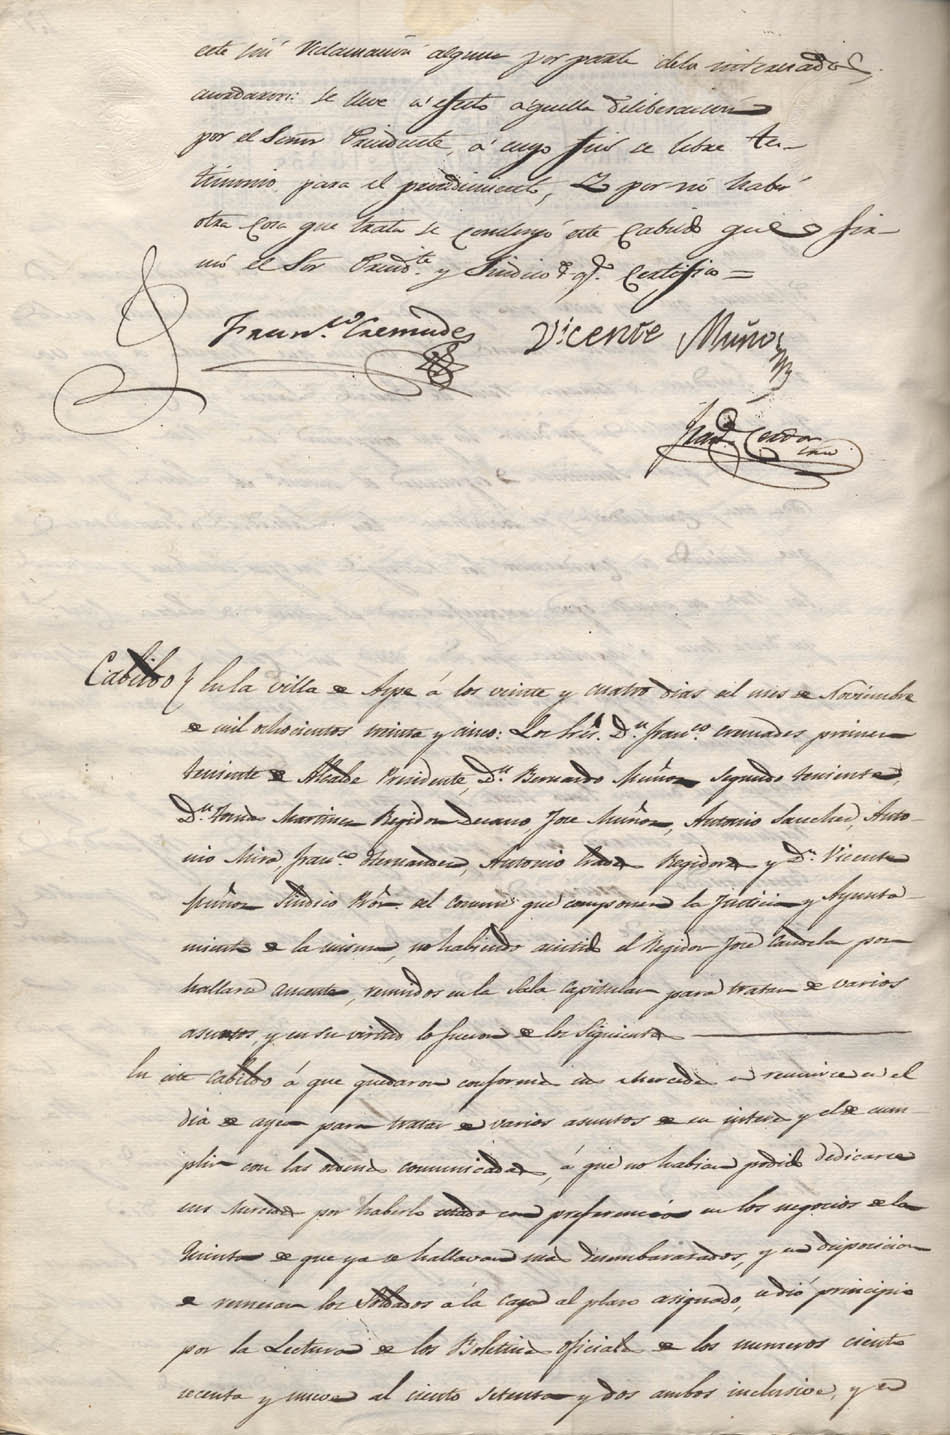 este sin reclamacion alguna por parte delos interesados,
acordaron: se lleve a efecto aquella deliberacion
por el Señor Presidente, á cuyo fin se libre tes-
timonio para el procedimiento, Y por no haber
otra cosa que tratar se concluyó este Cabildo que fir-
mó el Sor. Presidte. y Sindico de qe. Certifico =
Franco. Cremades Vicente Muñoz
Cabildo { En la villa de Aspe á los veinte y cuatro dias del mes de Noviembre
de mil ochocientos treinta y cinco: Los Sres. Dn. Franco. Cremades primer
teniente de Alcalde Presidente, Dn. Bernardo Muñoz segundo teniente,
Dn. Tomas Martinez Regidor Decano, Jose Muñoz, Antonio Sanchez, Anto-
nio Mira Franco. Hernandez, Antonio Regidores y Dn. Vicente
Muñoz Sindico Pror. del comun que componen la Justicia y Ayunta-
miento de la misma, no habiendo asistido el Regidor José Candela por
hallarse ausente, reunidos en la Sala Capitular para tratar de varios
asuntos, y en su virtud lo fueron de los siguientes
En este Cabildo á que quedaron conformes sus Mercedes en reunirse en el
dia de ayer para tratar de varios asuntos de su interes y el de cum-
plir con las ordenes comunicadas, á que no habian podido dedicarse
sus Mercedes por haberlo usado con preferencia en los negocios de la
Quinta de que ya se hallavan mas desembarazados, y en disposicion
de remesar los Soldados á la caja al plazo asignado, se dió principio
por la Lectura de los Boletines oficiales de los numeros ciento
secenta y nueve al ciento setenta y dos ambos inclusive, y en